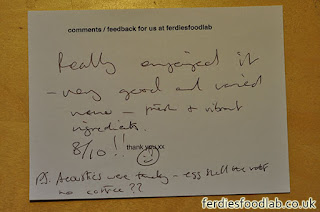 comments / feedback for us at ferdiesfoodlab
Really enjoyed it
- very good and varied
menu - fresh & vibrant
ingredients.
8/10!! thank you xx
PS. Acoustics were -
no coffee??
ferdiesfoodlab.co.uk